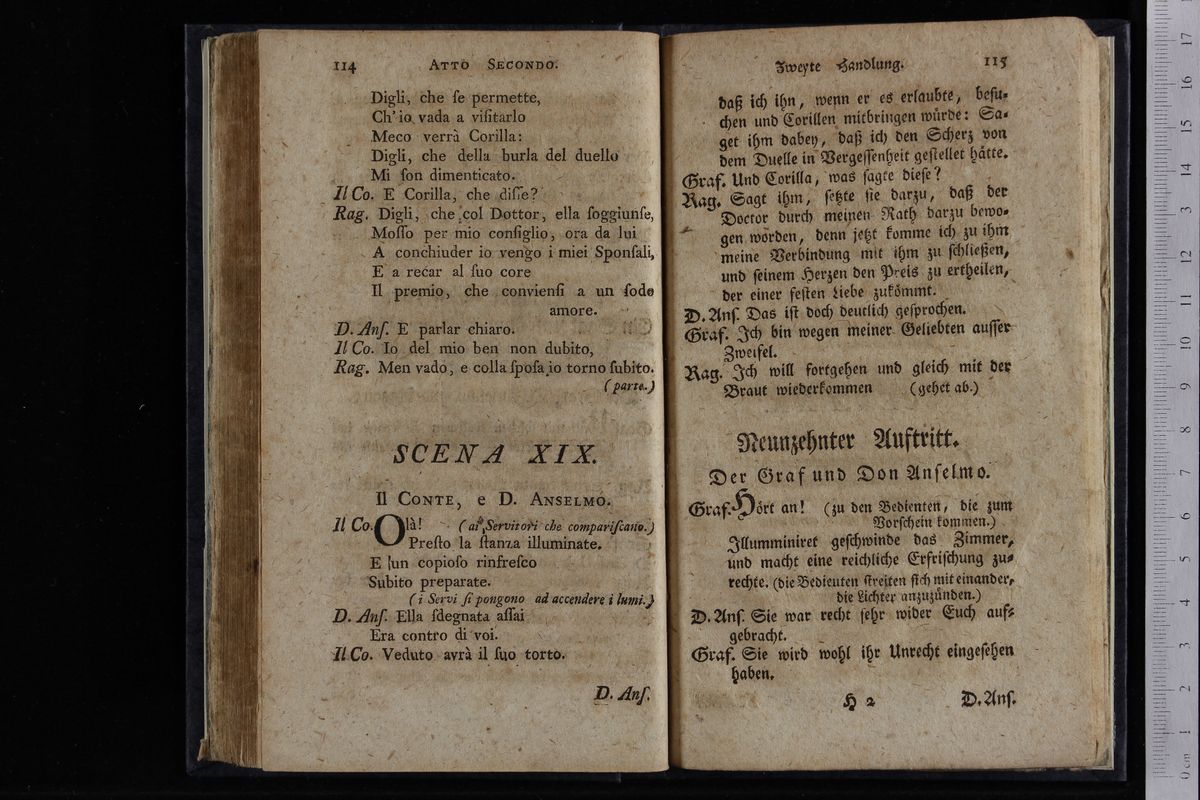 114 ATTO SECONDO.
Digli, che ſe permette,
Ch' io vada a viſitarlo
Meco verrà Corilla:
Digli, che della burla del duello
Mi ſon dimenticato.
Il Co. E Corilla, che diſſe?
Rag. Digli, che col Dottor, ella ſoggiunſe,
Moſſo per mio conſiglio, ora da lui
A conchiuder io vengo i miei Sponſali,
E a recar al ſuo core
Il premio, che convienſi a un ſodo
amore.
D. Anſ. E parlar chiaro.
Il Co. Io del mio ben non dubito,
Rag. Men vado, e colla ſpoſa io torno ſubito.
(parte.)
SCENA XIX.
Il CONTE, e D. ANSELMO.
Il Co. Olà! (ai Servitori che compariſcano.)
Preſto la ſtanza illuminate.
E un copioſo rinfreſco
Subito preparate.
(i Servi ſi pongono ad accendere i lumi.)
D. Anſ. Ella ſdegnata aſſai
Era contro di voi.
Il Co. Veduto avrà il ſuo torto.
D. Anſ.
Zweyte Handlung. 115
daß ich ihn, wenn er es erlaubte, beſu-
chen und Corillen mitbringen würde: Sa-
get ihm dabey, daß ich den Scherz von
dem Duelle in Vergeſſenheit geſtellet hätte.
Graf. Und Corilla, was ſagte dieſe?
Rag. Sagt ihm, ſetzte ſie darzu, daß der
Doctor durch meinen Rath darzu bewo-
gen worden, denn jetzt komme ich zu ihm
meine Verbindung mit ihm zu ſchließen,
und ſeinem Herzen den Preis zu ertheilen,
der einer feſten Liebe zukömmt.
D. Anſ. Das iſt doch deutlich geſprochen.
Graf. Ich bin wegen meiner Geliebten auſſer
Zweifel.
Rag. Ich will fortgehen und gleich mit der
Braut wiederkommen (gehet ab.)
Neunzehnter Auftritt.
Der Graf und Don Anſelmo.
Graf. Hört an! (zu den Bedienten, die zum
Vorſchein kommen.)
Illumminiret geſchwinde das Zimmer,
und macht eine reichliche Erfriſchung zu-
rechte. (die Bedienten ſtreiten ſich mit einander,
die Lichter anzuzünden.)
D. Anſ. Sie war recht ſehr wider Euch auf-
gebracht.
Graf. Sie wird wohl ihr Unrecht eingeſehen
haben.
H 2 D. Anſ.